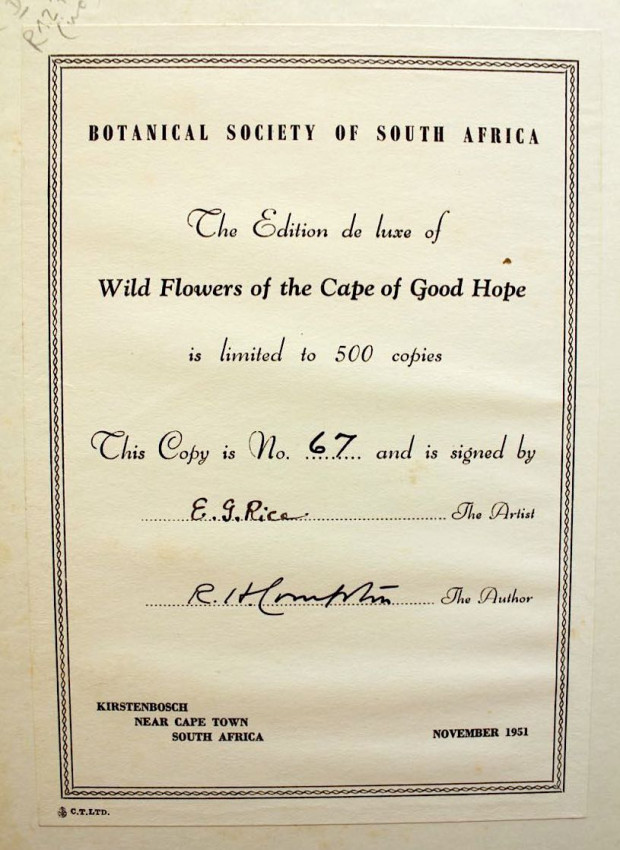 BOTANICAL SOCIETY OF SOUTH AFRICA
The Edition de luxe of
Wild Flowers of the Cape of Good Hope
is limited to 500 copies
This Copy is No. 67 and is signed by
E. G. Rice The Artist
R. H. Compton The Author
KIRSTENBOSCH
NEAR CAPE TOWN
SOUTH AFRICA
NOVEMBER 1951
C.T.LTD.